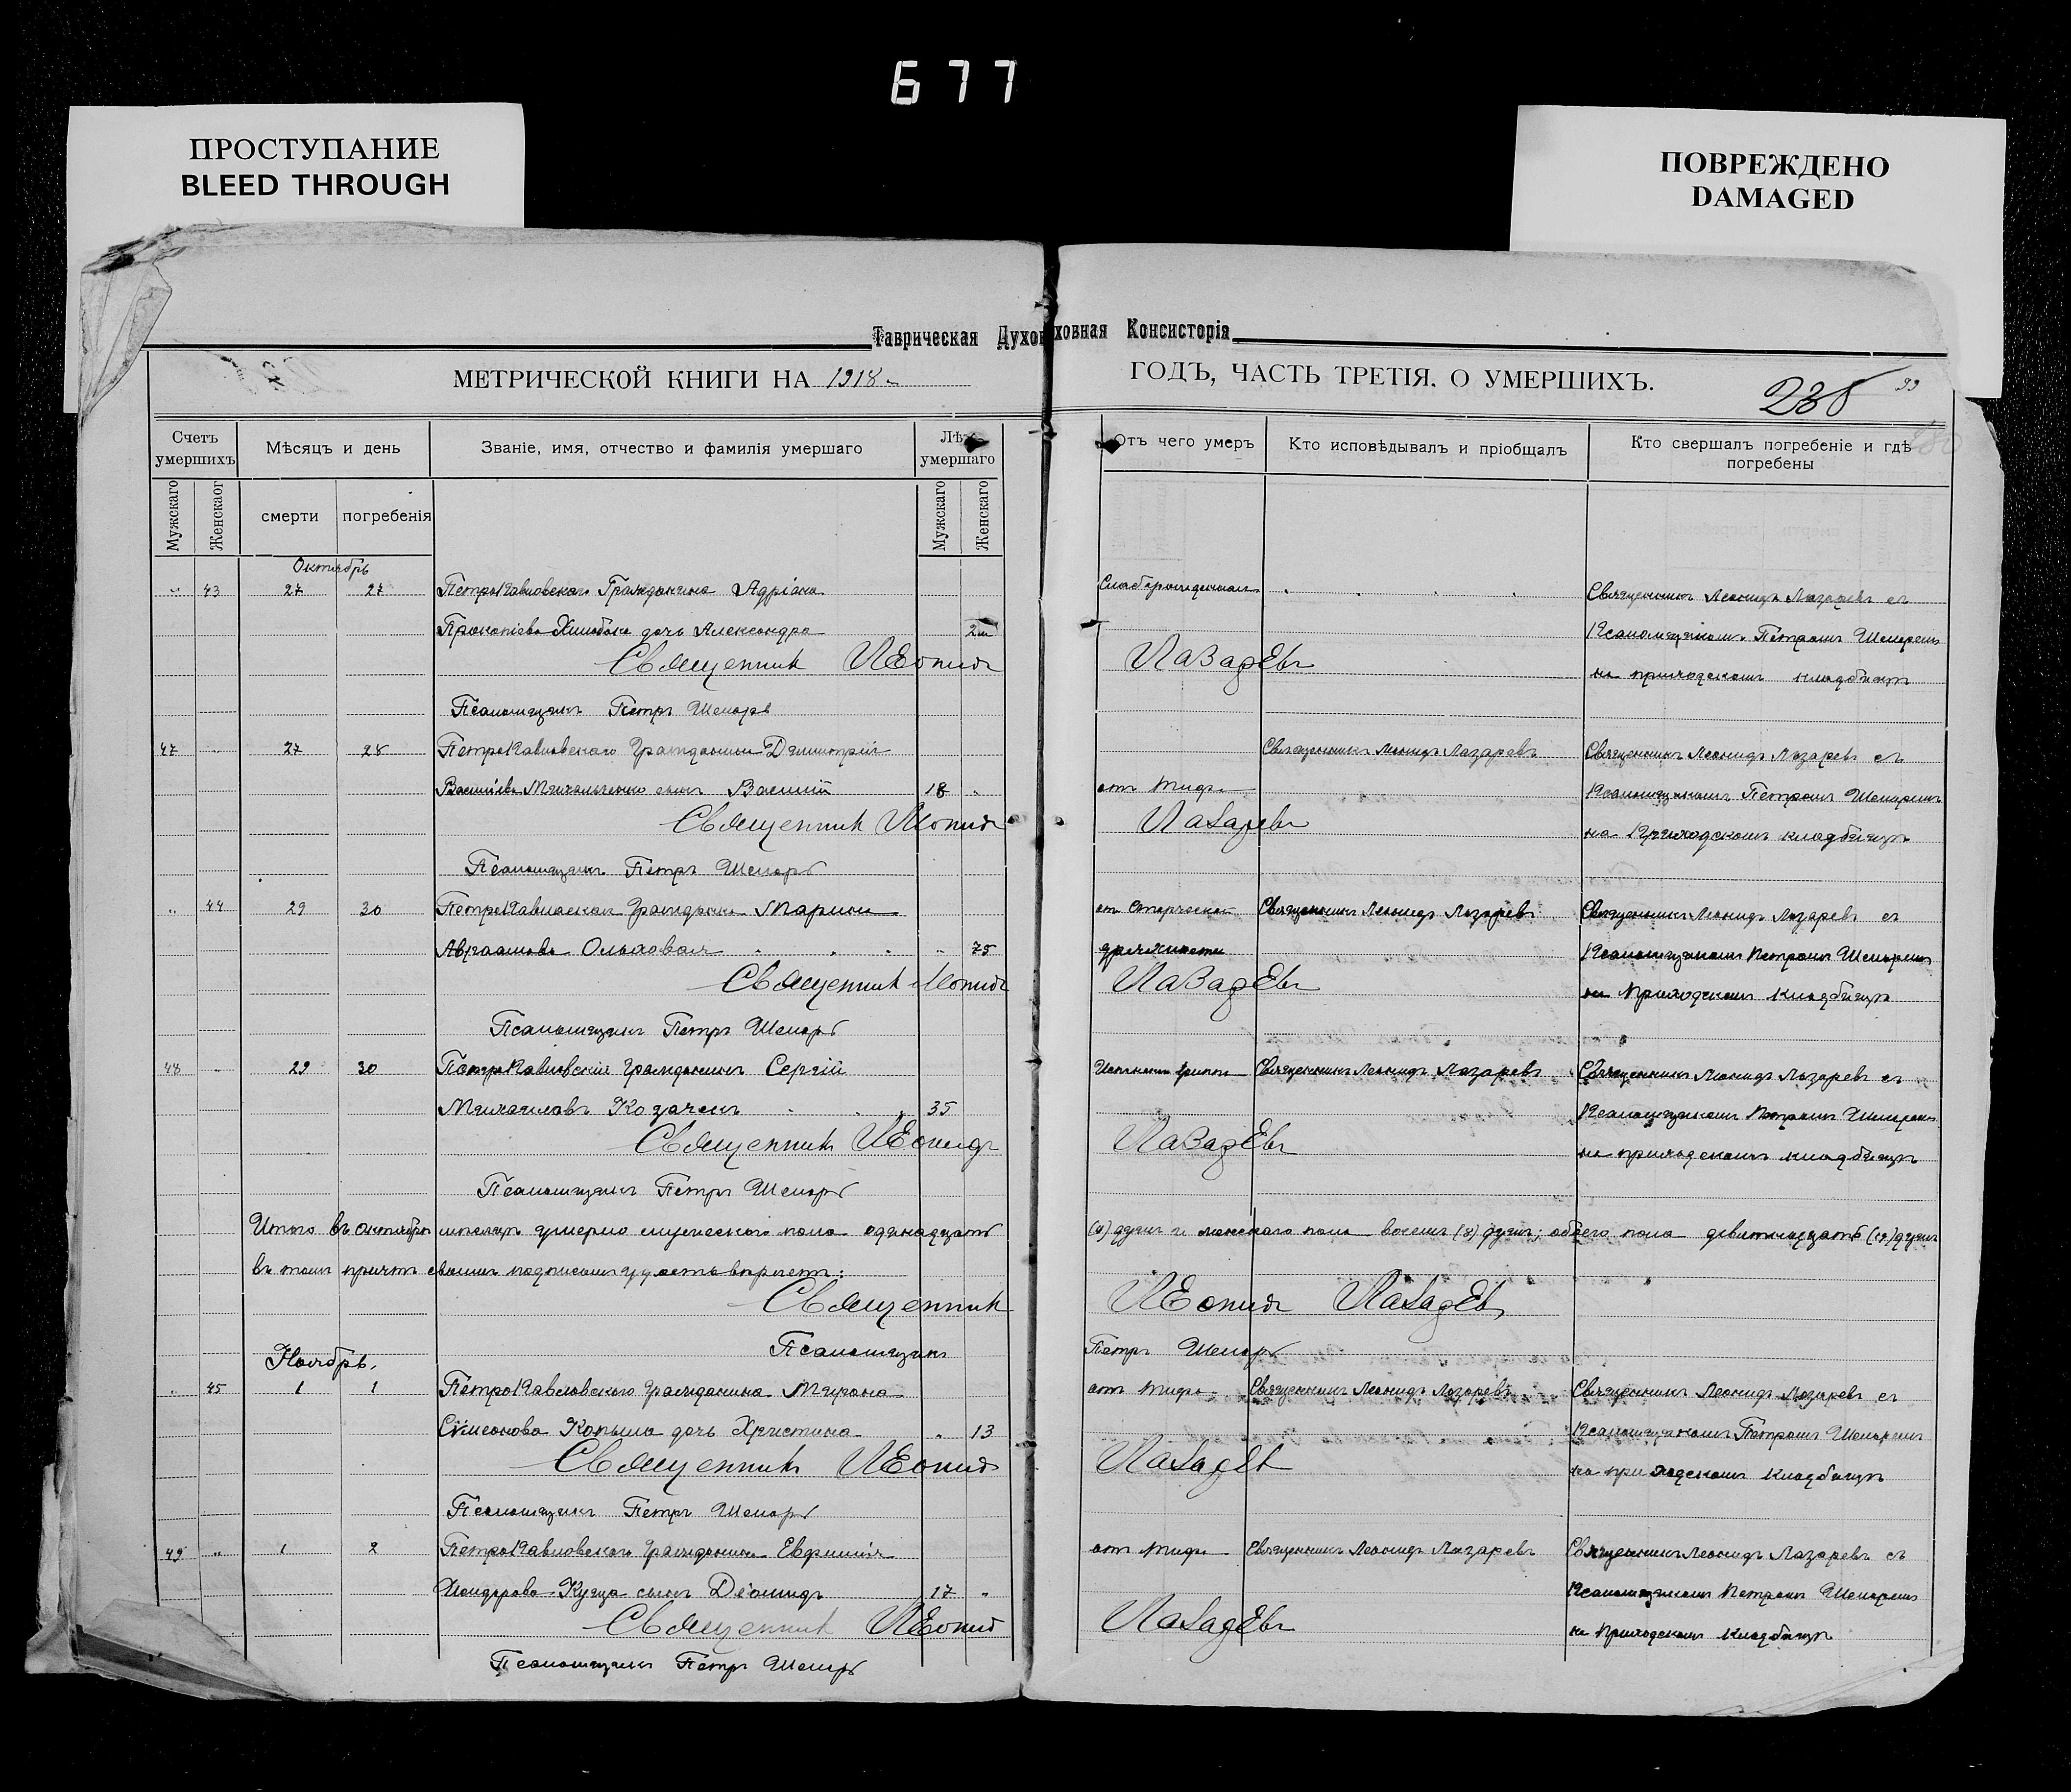 677
ПРОСТУПАНИЕ
BLEED THROUGH
ПОВРЕЖДЕНО
DAMAGED
Таврическая Духовная Консисторія
МЕТРИЧЕСКОЙ КНИГИ НА 1918
ГОДЪ, ЧАСТЬ ТРЕТІЯ, О УМЕРШИХЪ.
238
99
Счетъ умершихъ
Мѣсяцъ и день
Званіе, имя, отчество и фамилія умершаго
Лѣта умершаго
Отъ чего умеръ
Кто исповѣдывалъ и пріобщалъ
Кто свершалъ погребеніе и гдѣ погребены
Мужскаго
Женскаог
смерти
погребенія
Мужскаго
Женскаго
Октябрь
43 27 27 ПетроПавловскаго Гражданина Адріана Священникъ Леонидъ Лазаревъ съ
Прокопіева дочь Александра 2 Псаломщикомъ Петромъ Шепаремъ
Священникъ Леонидъ Лазаревъ на приходскомъ кладбищѣ
Псаломщикъ Петръ Шепарь
47 27 28 ПетроПавловскаго гражданина Димитрія Священникъ Леонидъ Лазаревъ Священникъ Леонидъ Лазаревъ съ
Михальченко сынъ Василій 18 отъ тифа Псаломщикомъ Петромъ Шепаремъ
Священникъ Леонидъ Лазаревъ на Приходскомъ кладбищѣ
Псаломщикъ Петръ Шепарь
44 29 30 Гражданка Ольховая 75 отъ старческой Священникъ Леонидъ Лазаревъ Священникъ Леонидъ Лазаревъ съ
дряхлости Псаломщикомъ Петромъ Шепаремъ
Священникъ Леонидъ Лазаревъ на Приходскомъ кладбищѣ
Псаломщикъ Петръ Шепарь
48 29 30 ПетроПавловскій гражданинъ Сергій Священникъ Леонидъ Лазаревъ Священникъ Леонидъ Лазаревъ съ
Михаиловъ Козаченъ 35 Псаломщикомъ Петромъ Шепаремъ
Священникъ Леонидъ Лазаревъ на приходскомъ кладбищѣ
Псаломщикъ Петръ Шепарь
Итого въ октябрѣ мѣсяцѣ умерло мужескаго пола одинадцать душъ и женскаго пола восемь (8) душъ; обоего пола девятнадцать (19) душъ
въ томъ причтъ своимъ подписомъ
Священникъ Леонидъ Лазаревъ
Псаломщикъ Петръ Шепарь
Ноябрь.
45 1 1 ПетроПавловскаго гражданина Мирона отъ тифа Священникъ Леонидъ Лазаревъ Священникъ Леонидъ Лазаревъ съ
Симеонова дочь Христина 13 Псаломщикомъ Петромъ Шепаремъ
Священникъ Леонидъ Лазаревъ на приходскомъ кладбищѣ
Псаломщикъ Петръ Шепарь
49 1 2 ПетроПавловскаго гражданина Евфимія отъ тифа Священникъ Леонидъ Лазаревъ Священникъ Леонидъ Лазаревъ съ
сынъ Діомидъ 17 Псаломщикомъ Петромъ Шепаремъ
Священникъ Леонидъ Лазаревъ на Приходскомъ кладбищѣ
Псаломщикъ Петръ Шепарь